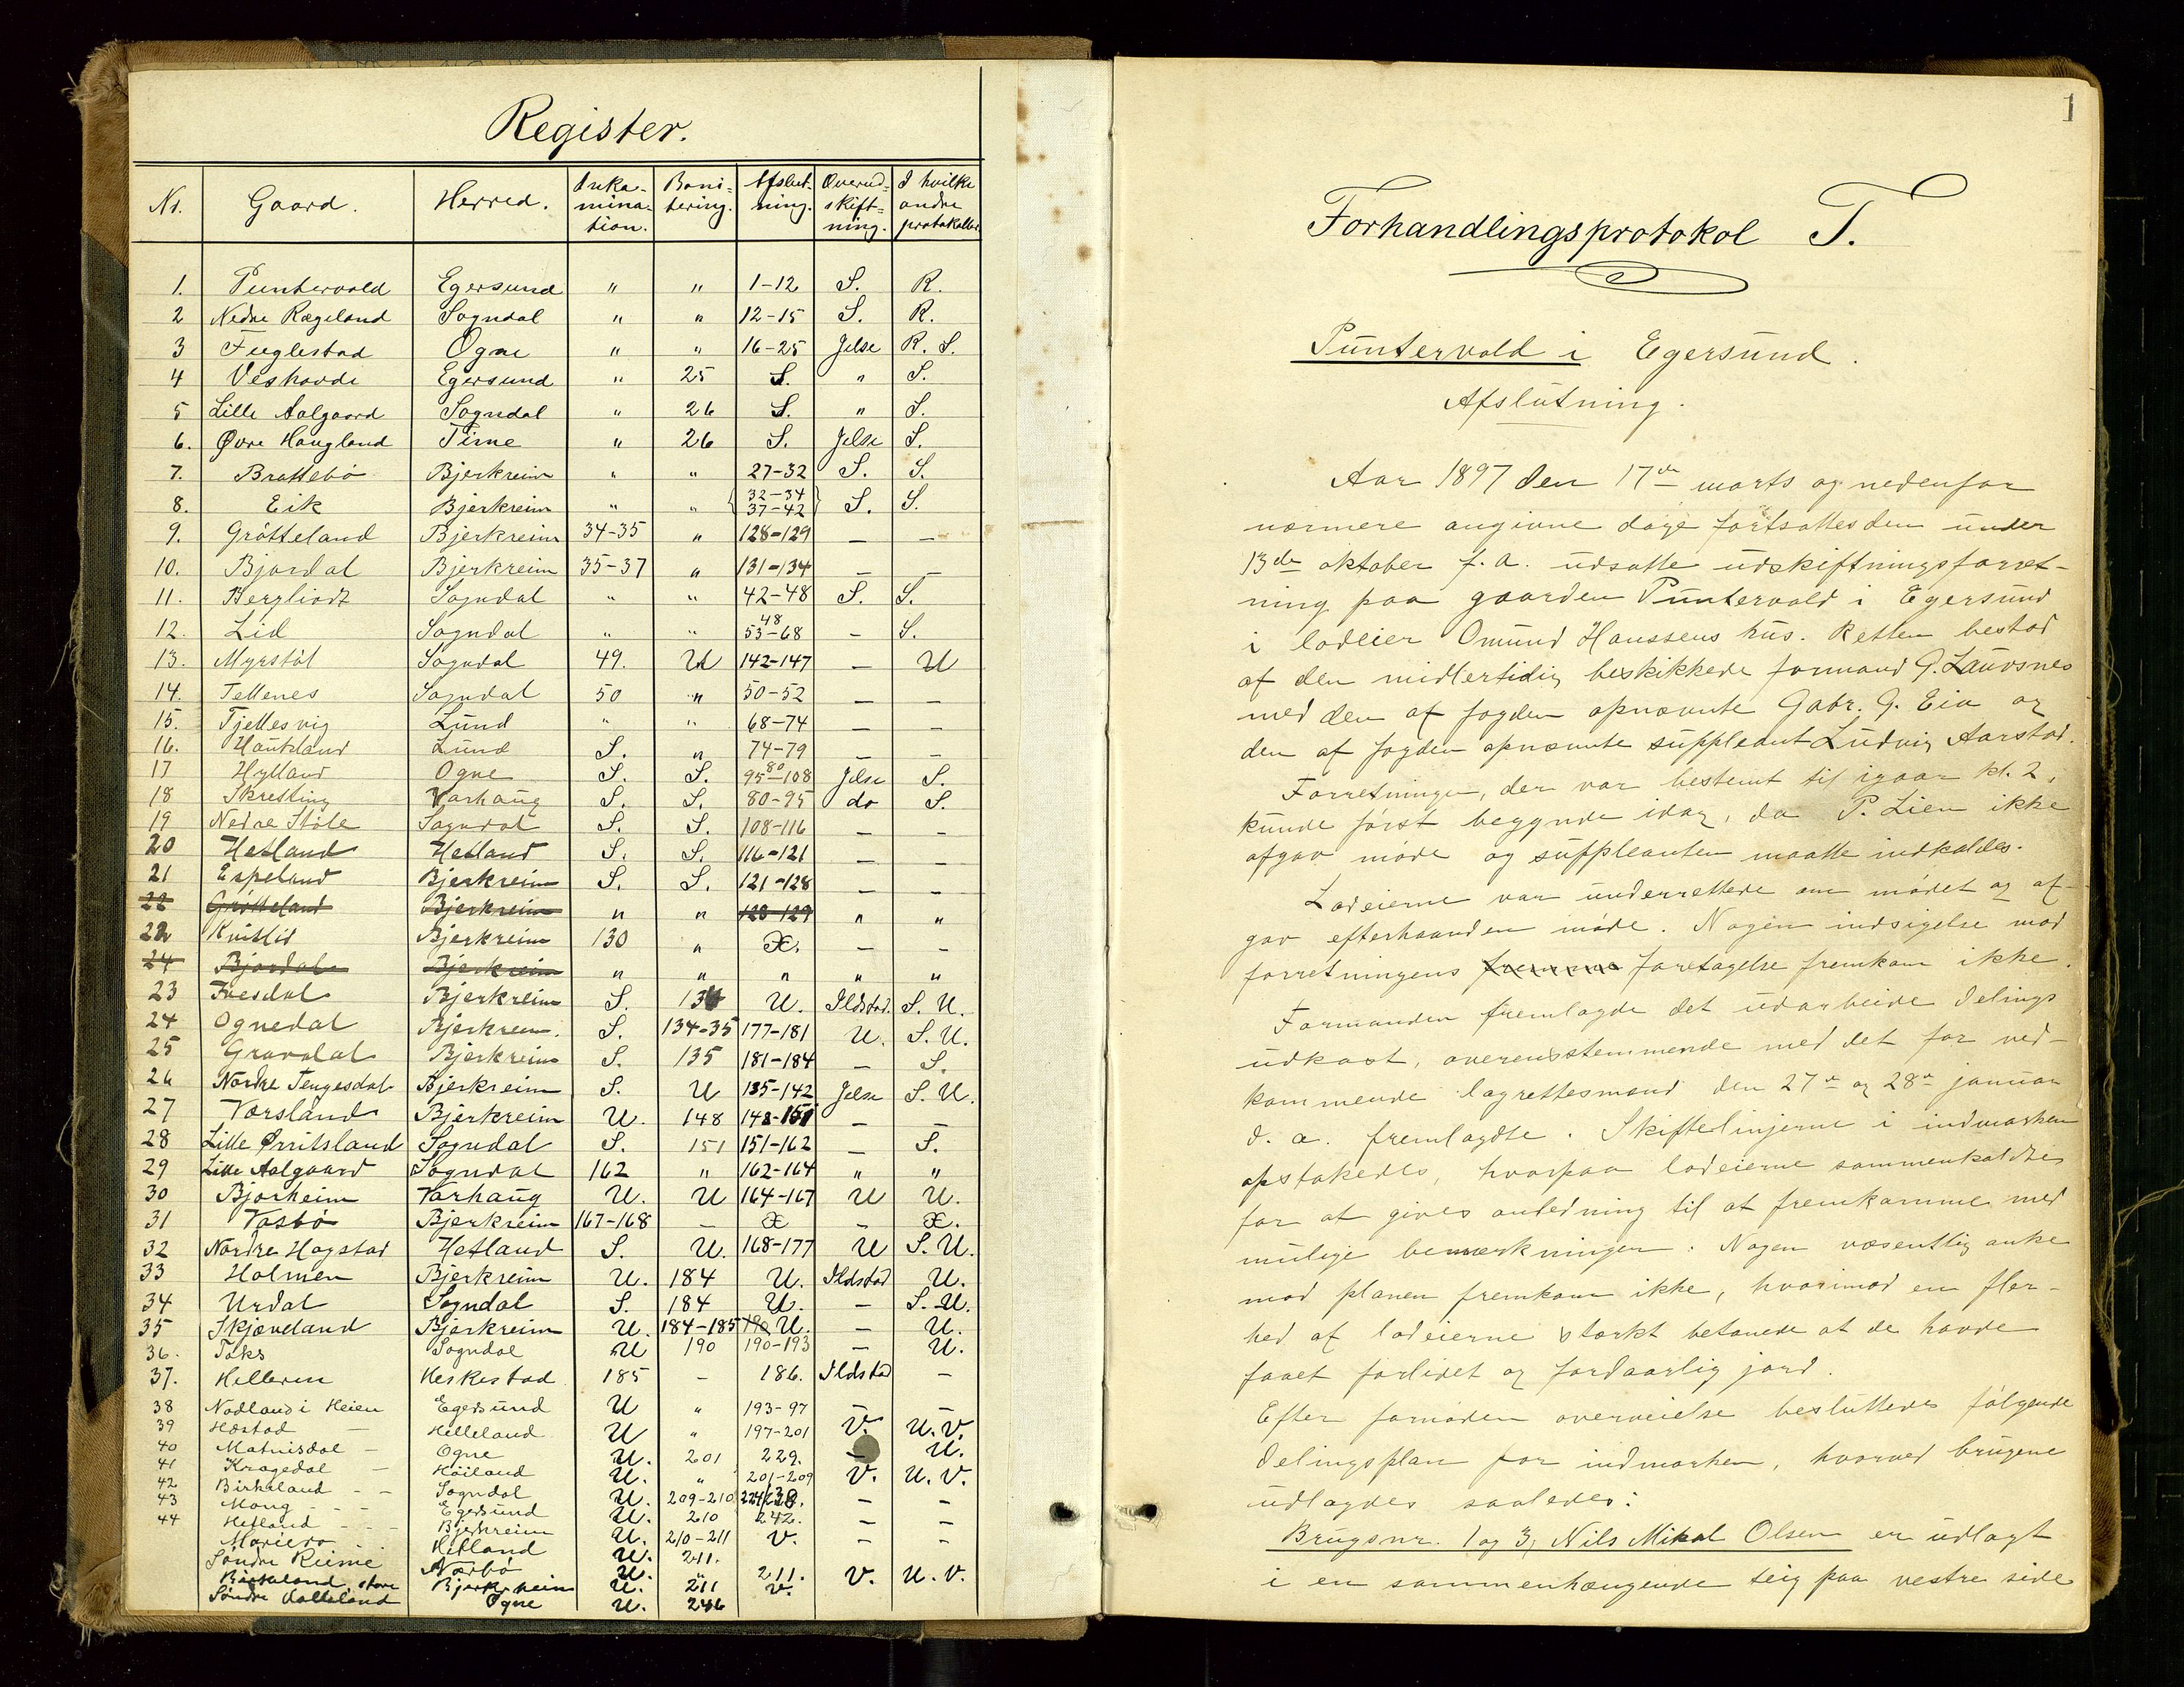 Register.
Nr. Gaard. Herred. Inka-mina-tion. Boni-tering. Afslut-ning. Overud-skift-ning. I hvilke andre protokoller
1. Puntervold Egersund " " 1-12 S. R.
2 Nedre Rægeland Sogndal " " 12-15 S. R.
3 Fuglestad Ogne " " 16-25 Jelse R. S.
4 Veshovde Egersund " 25 S. " S.
5 Lille Aalgaard Sogndal " 26 S. " S.
6. Øvre Haugland Time " 26 S. Jelse S.
7. Brattebö Bjerkreim " " 27-32 S. S.
8. Eik Bjerkreim " " 32-34 37-42 S. S.
9. Grötteland Bjerkreim 34-35 " 128-129 — —
10. Bjordal Bjerkreim 35-37 " 131-134 — —
11. Bergliodt Sogndal " " 42-48 S. S.
12. Lid Sogndal " " 48 53-68 - S.
13. Myrstöl Sogndal 49. U 142-147 — U
14. Tellenes Sogndal 50 " 50-52 — —
15. Tjellesvig Lund " " 68-74 — —
16. Haukland Lund S. " 74-79 — —
17 Hylland Ogne S. S. 80 95-108 Jelse S.
18 Skretting Varhaug S. S. 80-95 do S.
19 Nedre Støle Sogndal S. S. 108-116 — —
20 Hetland Hetland S. S. 116-121 — —
21 Espeland Bjerkreim S. S. 121-128 — —
22 Grötteland Bjerkreim " " 128-129 " "
22 Kvitlid Bjerkreim 130 " Æ. — —
24 Bjordal Bjerkreim " " " " "
23 Ivesdal Bjerkreim S. 134 U. Ildstad. S. U.
24 Ognedal Bjerkreim. S. 134-35 177-181 U. S. U.
25 Gravdal Bjerkreim S. 135 181-184 — S.
26 Nordre Tengesdal Bjerkreim S. U 135-142 Jelse S. U.
27 Vorsland Bjerkreim U. 148 148-151 — —
28 Lille Ørritsland Sogndal S. 151 151-162 — S.
29 Lille Aalgaard Sogndal 162 " 162-164 " "
30 Bjorheim Varhaug U. U 164-167 U U.
31 Vasbö Bjerkreim 167-168 — Æ — Æ.
32 Nordre Hogstad Hetland S. U. 168-177 U S. U.
33 Holmen Bjerkreim U. 184 U. Ildstad U.
34 Urdal Sogndal S. 184 U. — S. U.
35 Skjæveland Bjerkreim U. 184-185 190 U. — U.
36. Toks Sogndal U 190 190-193 — U.
37. Helleren Heskestad 185 — 186. Ildstad —
38 Nodland i Heien Egersund U " 193-97 — —
39 Hæstad — Helleland U " 197-201 V. U. V.
40 Matnisdal — Ogne U. 201 229. — U.
41 Kragedal — Höiland U. " 201-209 V. U. V.
42 Birkeland - - Sogndal U. 209-210 238. — —
43 Mong - - - Egersund U. 210 242. — —
44 Hetland - - - Bjerkreim U. 210-211 V. — —
Mariero Hetland U. 211.
Søndre Reime Nærbö U. " 211. V. U. V.
Birkeland, store Bjerkreim U. 211 V.
Søndre Ogne U. 246
1
Forhandlingsprotokol T.
Puntervold i Egersund.
Afslutning.
Aar 1897 den 17de marts og nedenfor
nærmere angivne dage fortsattes den under
13de oktober f. a. udsatte udskiftningsforret-
ning paa gaarden Puntervold i Egersund
i lodeier Omund Hanssens hus. Retten bestod
af den midlertidig beskikkede formand G. Lauvsnes
med den af fogden opnævnte Gabr. G. Eia og
den af fogden opnævnte suppleant Ludvig Aarstad.
Forretningen, der var bestemt til igaar kl. 2,
kunde først begynde idag, da P. Lien ikke
afgav møde og suppleanten maatte indkaldes.
Lodeierne var underrettede om mødet og af-
gav efterhaanden møde. Nogen indsigelse mod
forretningens fremme foretagelse fremkom ikke.
Formanden fremlagde det udarbeide delings
udkast, overensstemmende med det for ved-
kommende lagrettesmænd den 27de og 28de januar
d. a. fremlagdte. Skiftelinjerne i indmarken
opstakedes, hvorpaa lodeierne sammenkaldtes
for at gives anledning til at fremkomme med
mulige bemærkninger. Nogen væsentlig anke
mod planen fremkom ikke, hvorimod en fler-
hed af lodeierne stærkt betonede at de havde
faaet forlidet og fordaarlig jord.
Efter fornøden overveielse besluttedes følgende
delingsplan for indmarken, hvorved brugene
udlagdes saaledes:
Brugsnr. 1 og 3, Nils Mikal Olsen er udlagt
i en sammenhængende teig paa vestre side